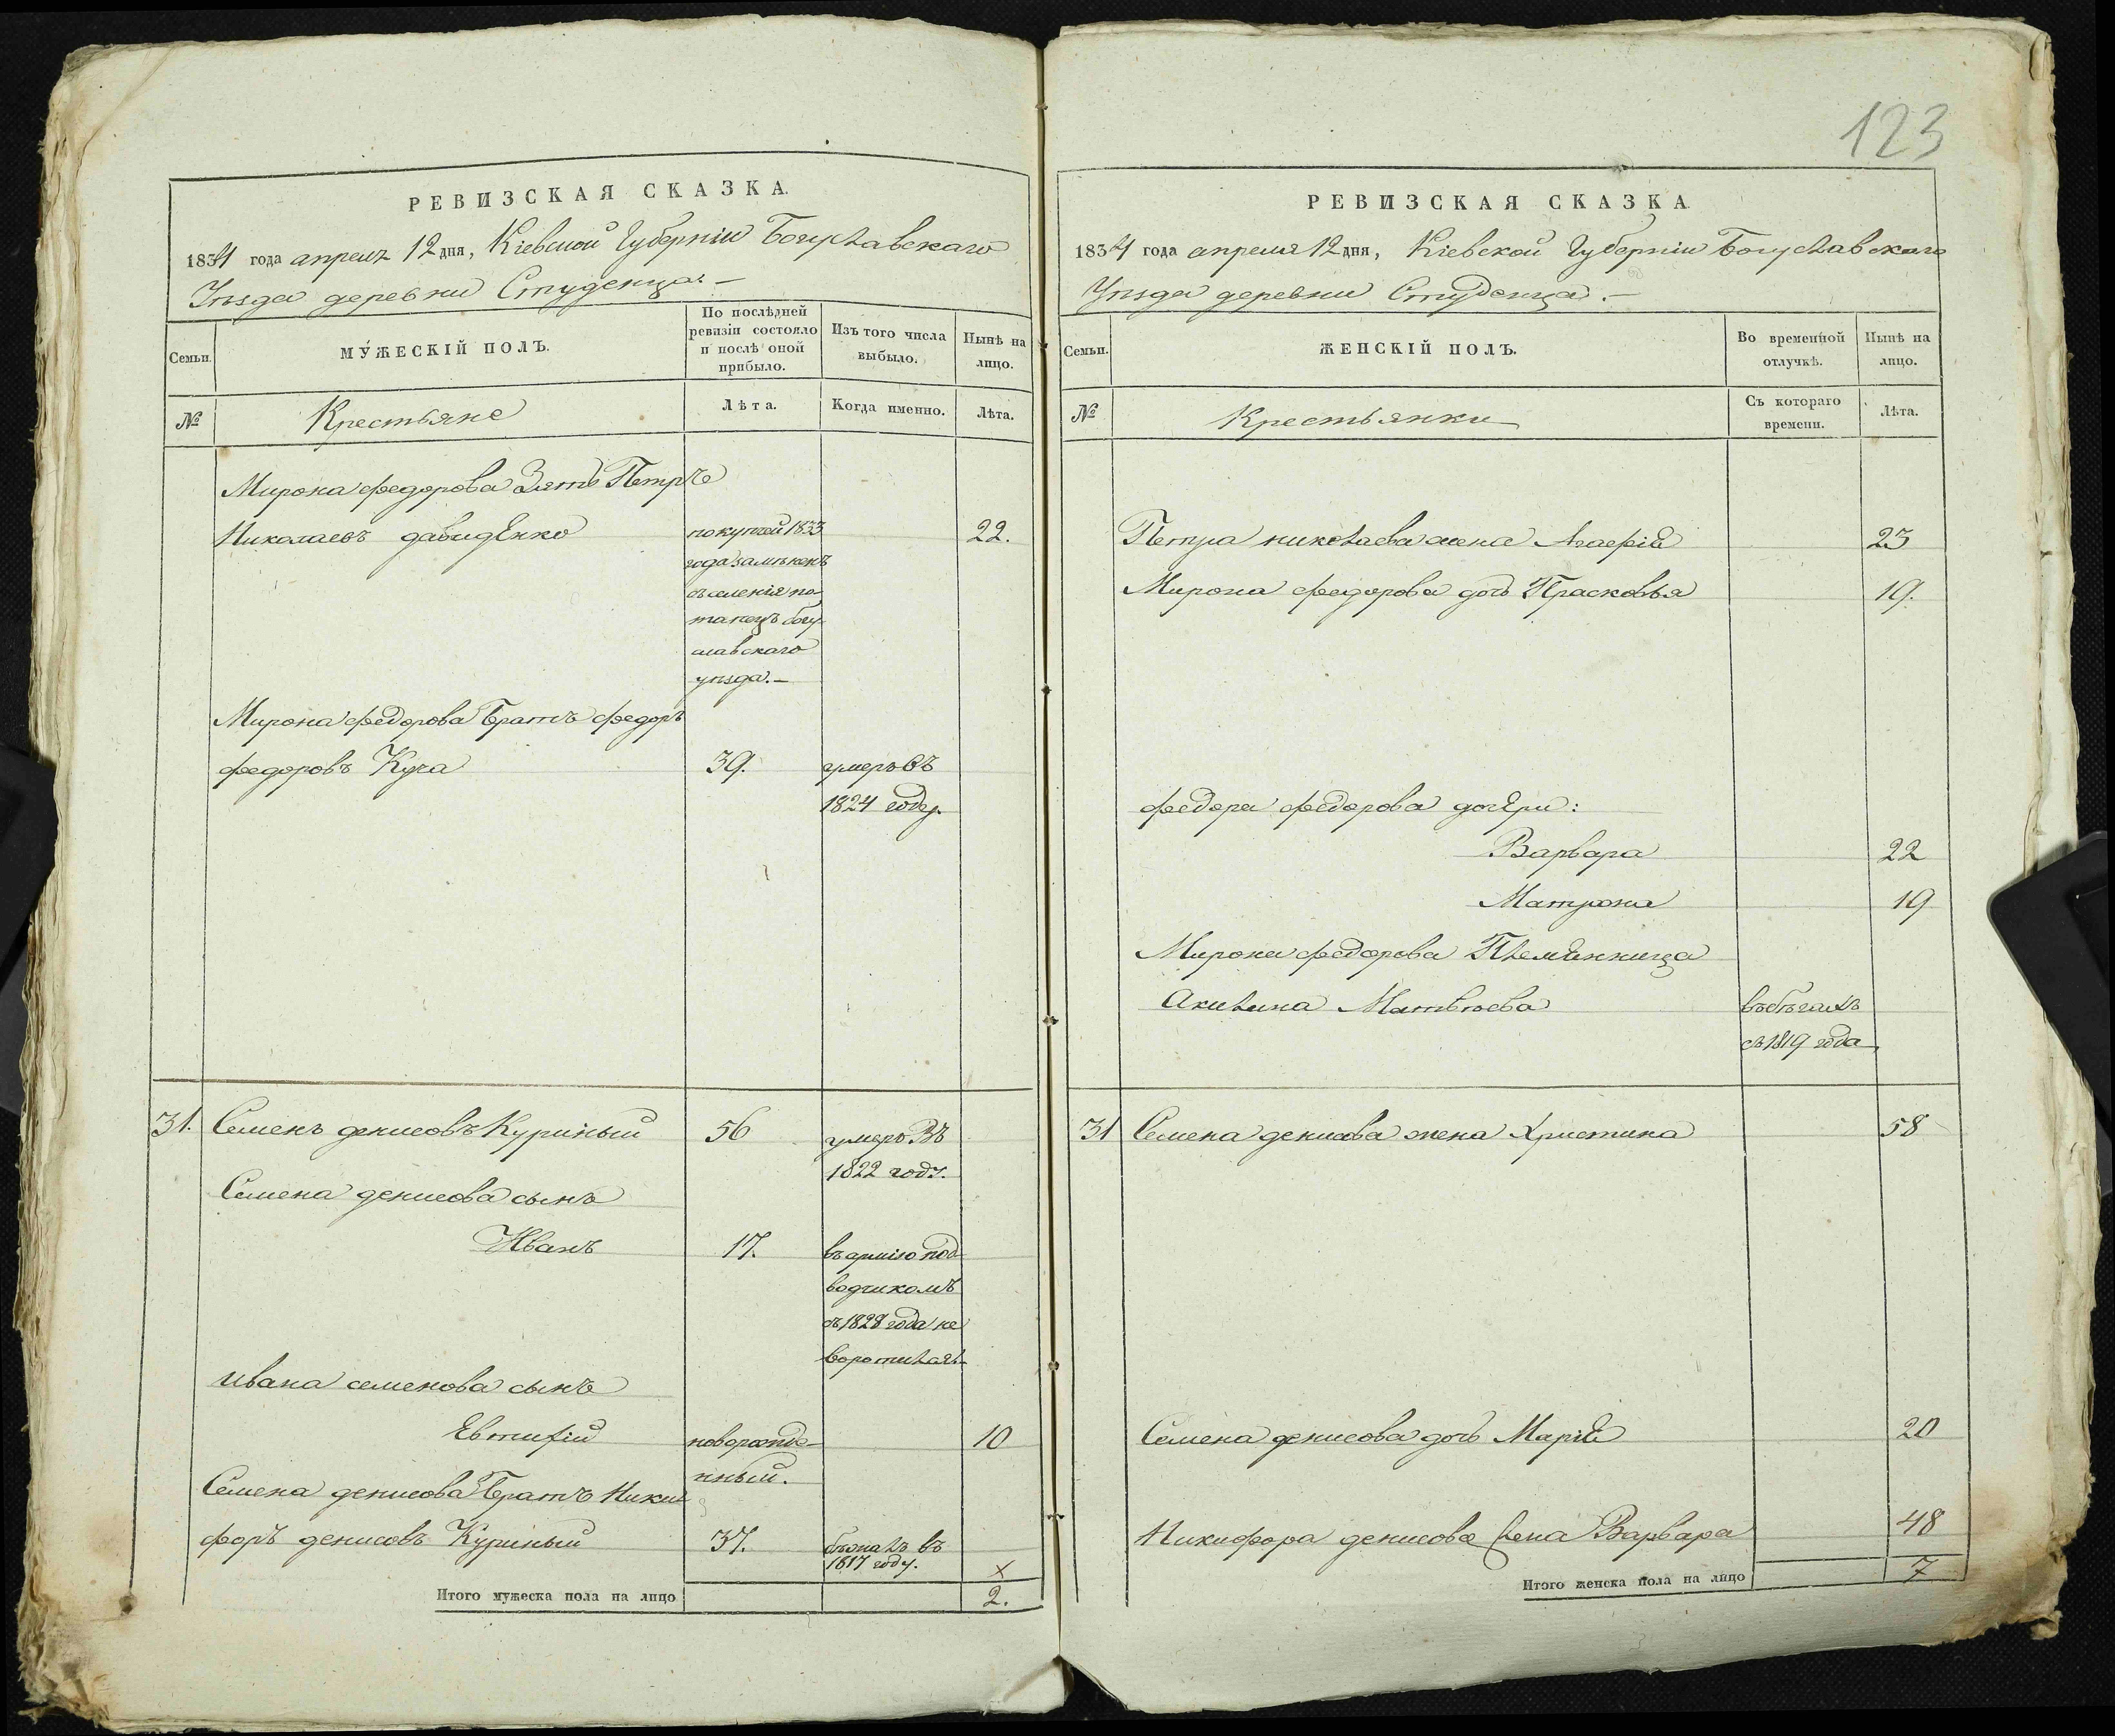 РЕВИЗСКАЯ СКАЗКА.
1834 года апреля 12 дня, Кіевской Губерніи Богуславскаго
Уѣзда деревни Студенца. —
Семьи.
МУЖЕСКІЙ ПОЛЪ.
По послѣдней
ревизіи состояло
и послѣ оной
прибыло.
Изъ того числа
выбыло.
Нынѣ на
лицо.
№
Крестьяне
Лѣта.
Когда именно.
Лѣта.
Мирона федорова Зять Петръ
Николаевъ давиденко
22.
покупкой 1833
года
съ селенія по-
тапецъ богу-
славскаго
уѣзда. —
Мирона федорова Братъ федоръ
федоровъ Куча 39. умеръ въ
1824 году.
31. Семенъ денисовъ Куриный 56 умеръ въ
1822 году.
Семена денисова сынъ
Иванъ 17. въ армію под-
водчикомъ
съ 1828 года не
воротился. —
ивана семенова сынъ
Евтифій новорожде- 10
нный.
Семена денисова Братъ Ники-
форъ денисовъ Куриный 37. бѣжалъ въ
1817 году.
х
Итого мужеска пола на лицо 2.
123
РЕВИЗСКАЯ СКАЗКА
1834 года апреля 12 дня, Кіевской Губерніи Богуславскаго
Уѣзда деревни Студенца. —
Семьи.
ЖЕНСКІЙ ПОЛЪ.
Во временной
отлучкѣ.
Нынѣ на
лицо.
№
Крестьянки
Съ котораго
времени.
Лѣта.
Петра николаева жена 23
Мирона федорова дочь Прасковья 19.
федора федорова дочери:
Варвара 22
Матрона 19
Мирона федорова Племянница
Акилина Матвѣева въ бѣгахъ
съ 1819 года
31 Семена денисова жена Христина 58
Семена денисова дочь Марія 20
Никифора денисова жена Варвара 48
Итого женска пола на лицо 7